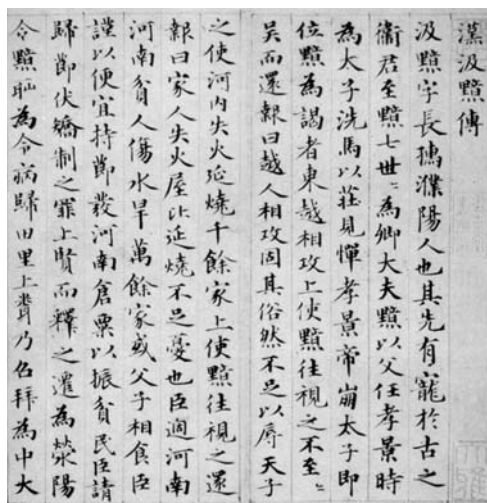 漢汲黯傳
汲黯字長孺濮陽人也其先有寵於古之
衛君至黯七世〻為卿大夫黯以父任孝景時
為太子洗馬以莊見憚孝景帝崩太子即
位黯為謁者東越相攻上使黯往視之不至〻
吳而還報曰越人相攻固其俗然不足以辱天子
之使河内失火延燒千餘家上使黯往視之還
報曰家人失火屋比延燒不足憂也臣過河南
河南貧人傷水旱萬餘家或父子相食臣
謹以便宜持節發河南倉粟以振貧民臣請
歸節伏矯制之罪上賢而釋之遷為滎陽
令黯恥為令病歸田里上聞乃召拜為中大